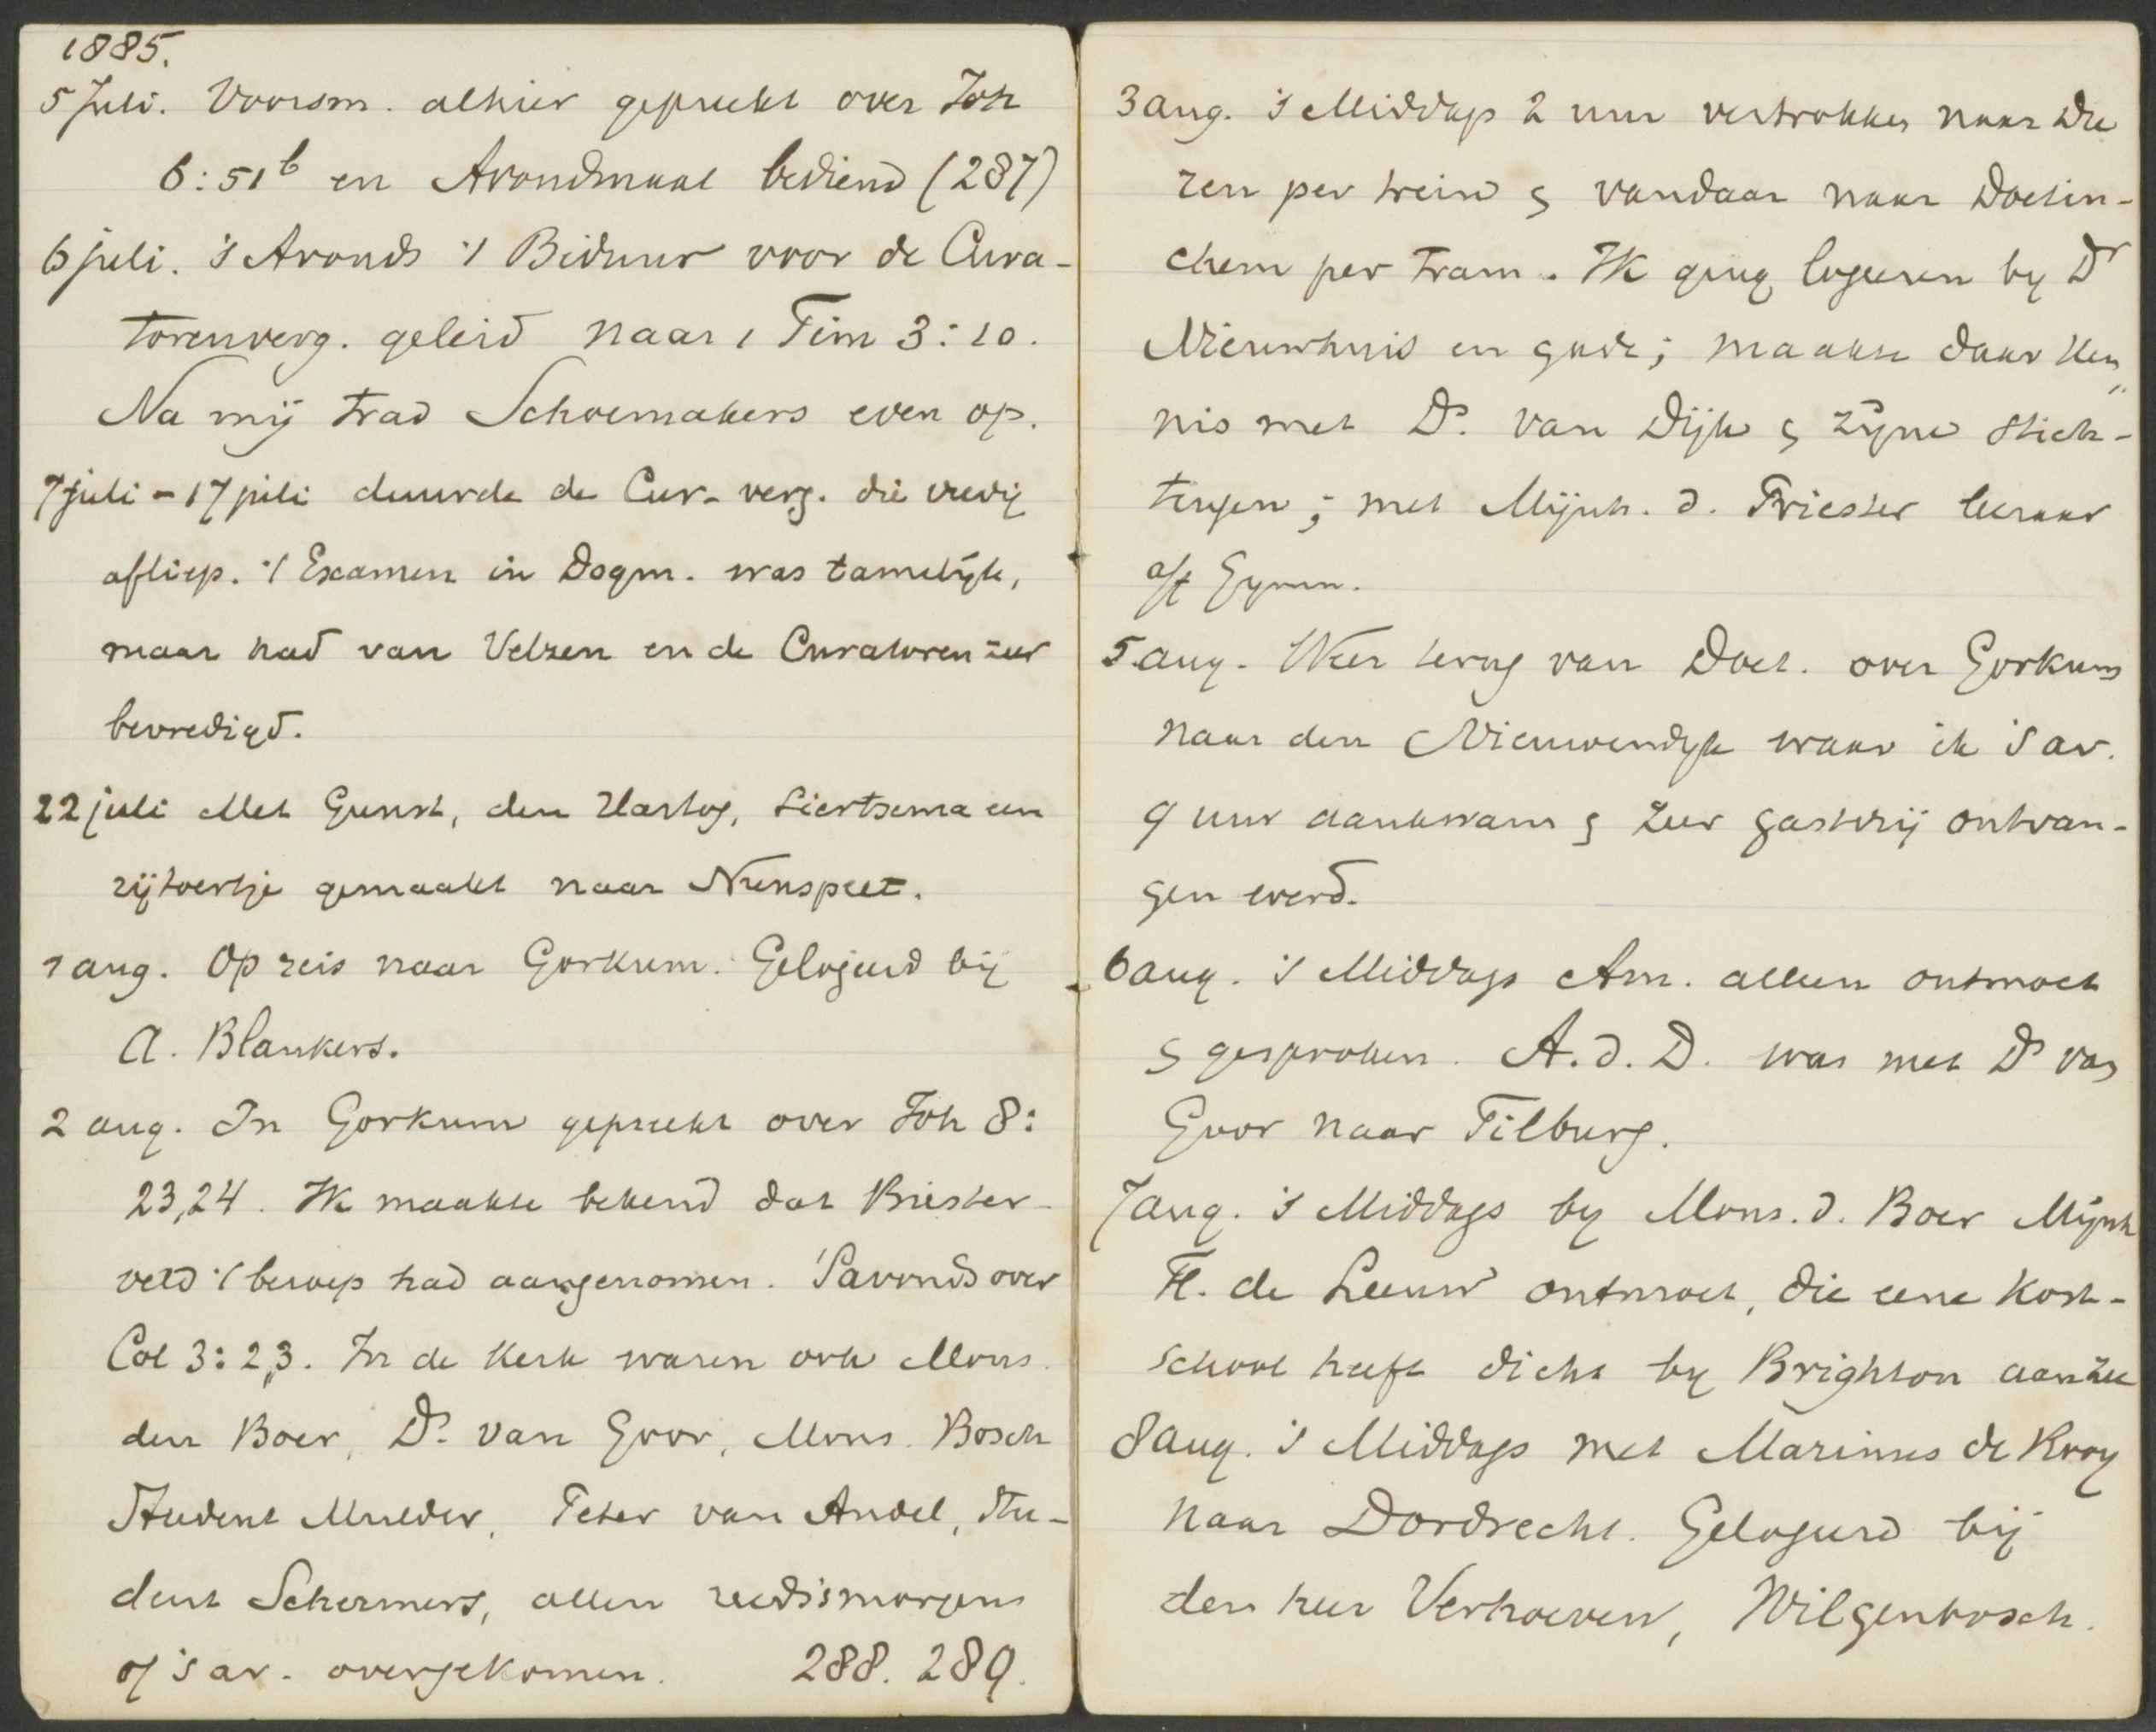 1885.
5 Juli. Voorsm. alhier gepreekt over Joh
6:51b en Avondmaal bediend (287)
6 juli. 's Avonds 't Biduur voor de Cura-
torenverg. geleid naar 1 Tim 3:10.
Na mij trad Schoemakers even op.
7 juli - 17 juli duurde de Cur. verg. die vredig
afliep. 't Examen in Dogm. was tamelijk,
maar had van Velzen en de Curatoren zeer
bevredigd.
22 juli Met Gunst, den Hartog, Liertsema een
rijtoertje gemaakt naar Nunspeet.
1 aug. Op reis naar Gorkum. Gelogeerd bij
A. Blankers.
2 aug. In Gorkum gepreekt over Joh 8:
23,24. Ik maakte bekend dat Biester-
veld 't beroep had aangenomen. 's Avonds over
Col 3:2,3. In de Kerk waren ook Mons.
den Boer, Ds. van Goor, Mons. Bosch
Student Mulder, Peter van Andel, Stu-
dent Schermers, allen reeds 's morgens
of 's av. overgekomen. 288. 289.
3 aug. 's Middags 2 uur vertrokken naar Die
ren per trein & vandaar naar Doetin-
chem per tram. Ik ging logeeren by Dr
Nieuwhuis en gade; maakte daar ken„
nis met Ds. van Dijk & zyne stich-
tingen; met Mijnh. d. Priester leeraar
a/t Gymn.
5 aug. Weer terug van Doet. over Gorkum
naar den Nieuwendyk waar ik 's av.
9 uur aankwam & zeer gastvrij ontvan-
gen werd.
6 aug. 's Middags Am. alleen ontmoet
& gesproken. A. d. D. was met Ds van
Goor naar Tilburg.
7 aug. 's Middags by Mons. d. Boer Mijnh
H. de Leeuw ontmoet, die eene Kost-
school heeft dicht by Brighton aan zee
8 aug. 's Middags met Marinus de Kooy
naar Dordrecht. Gelogeerd bij
den heer Verhoeven, Wilgenbosch.